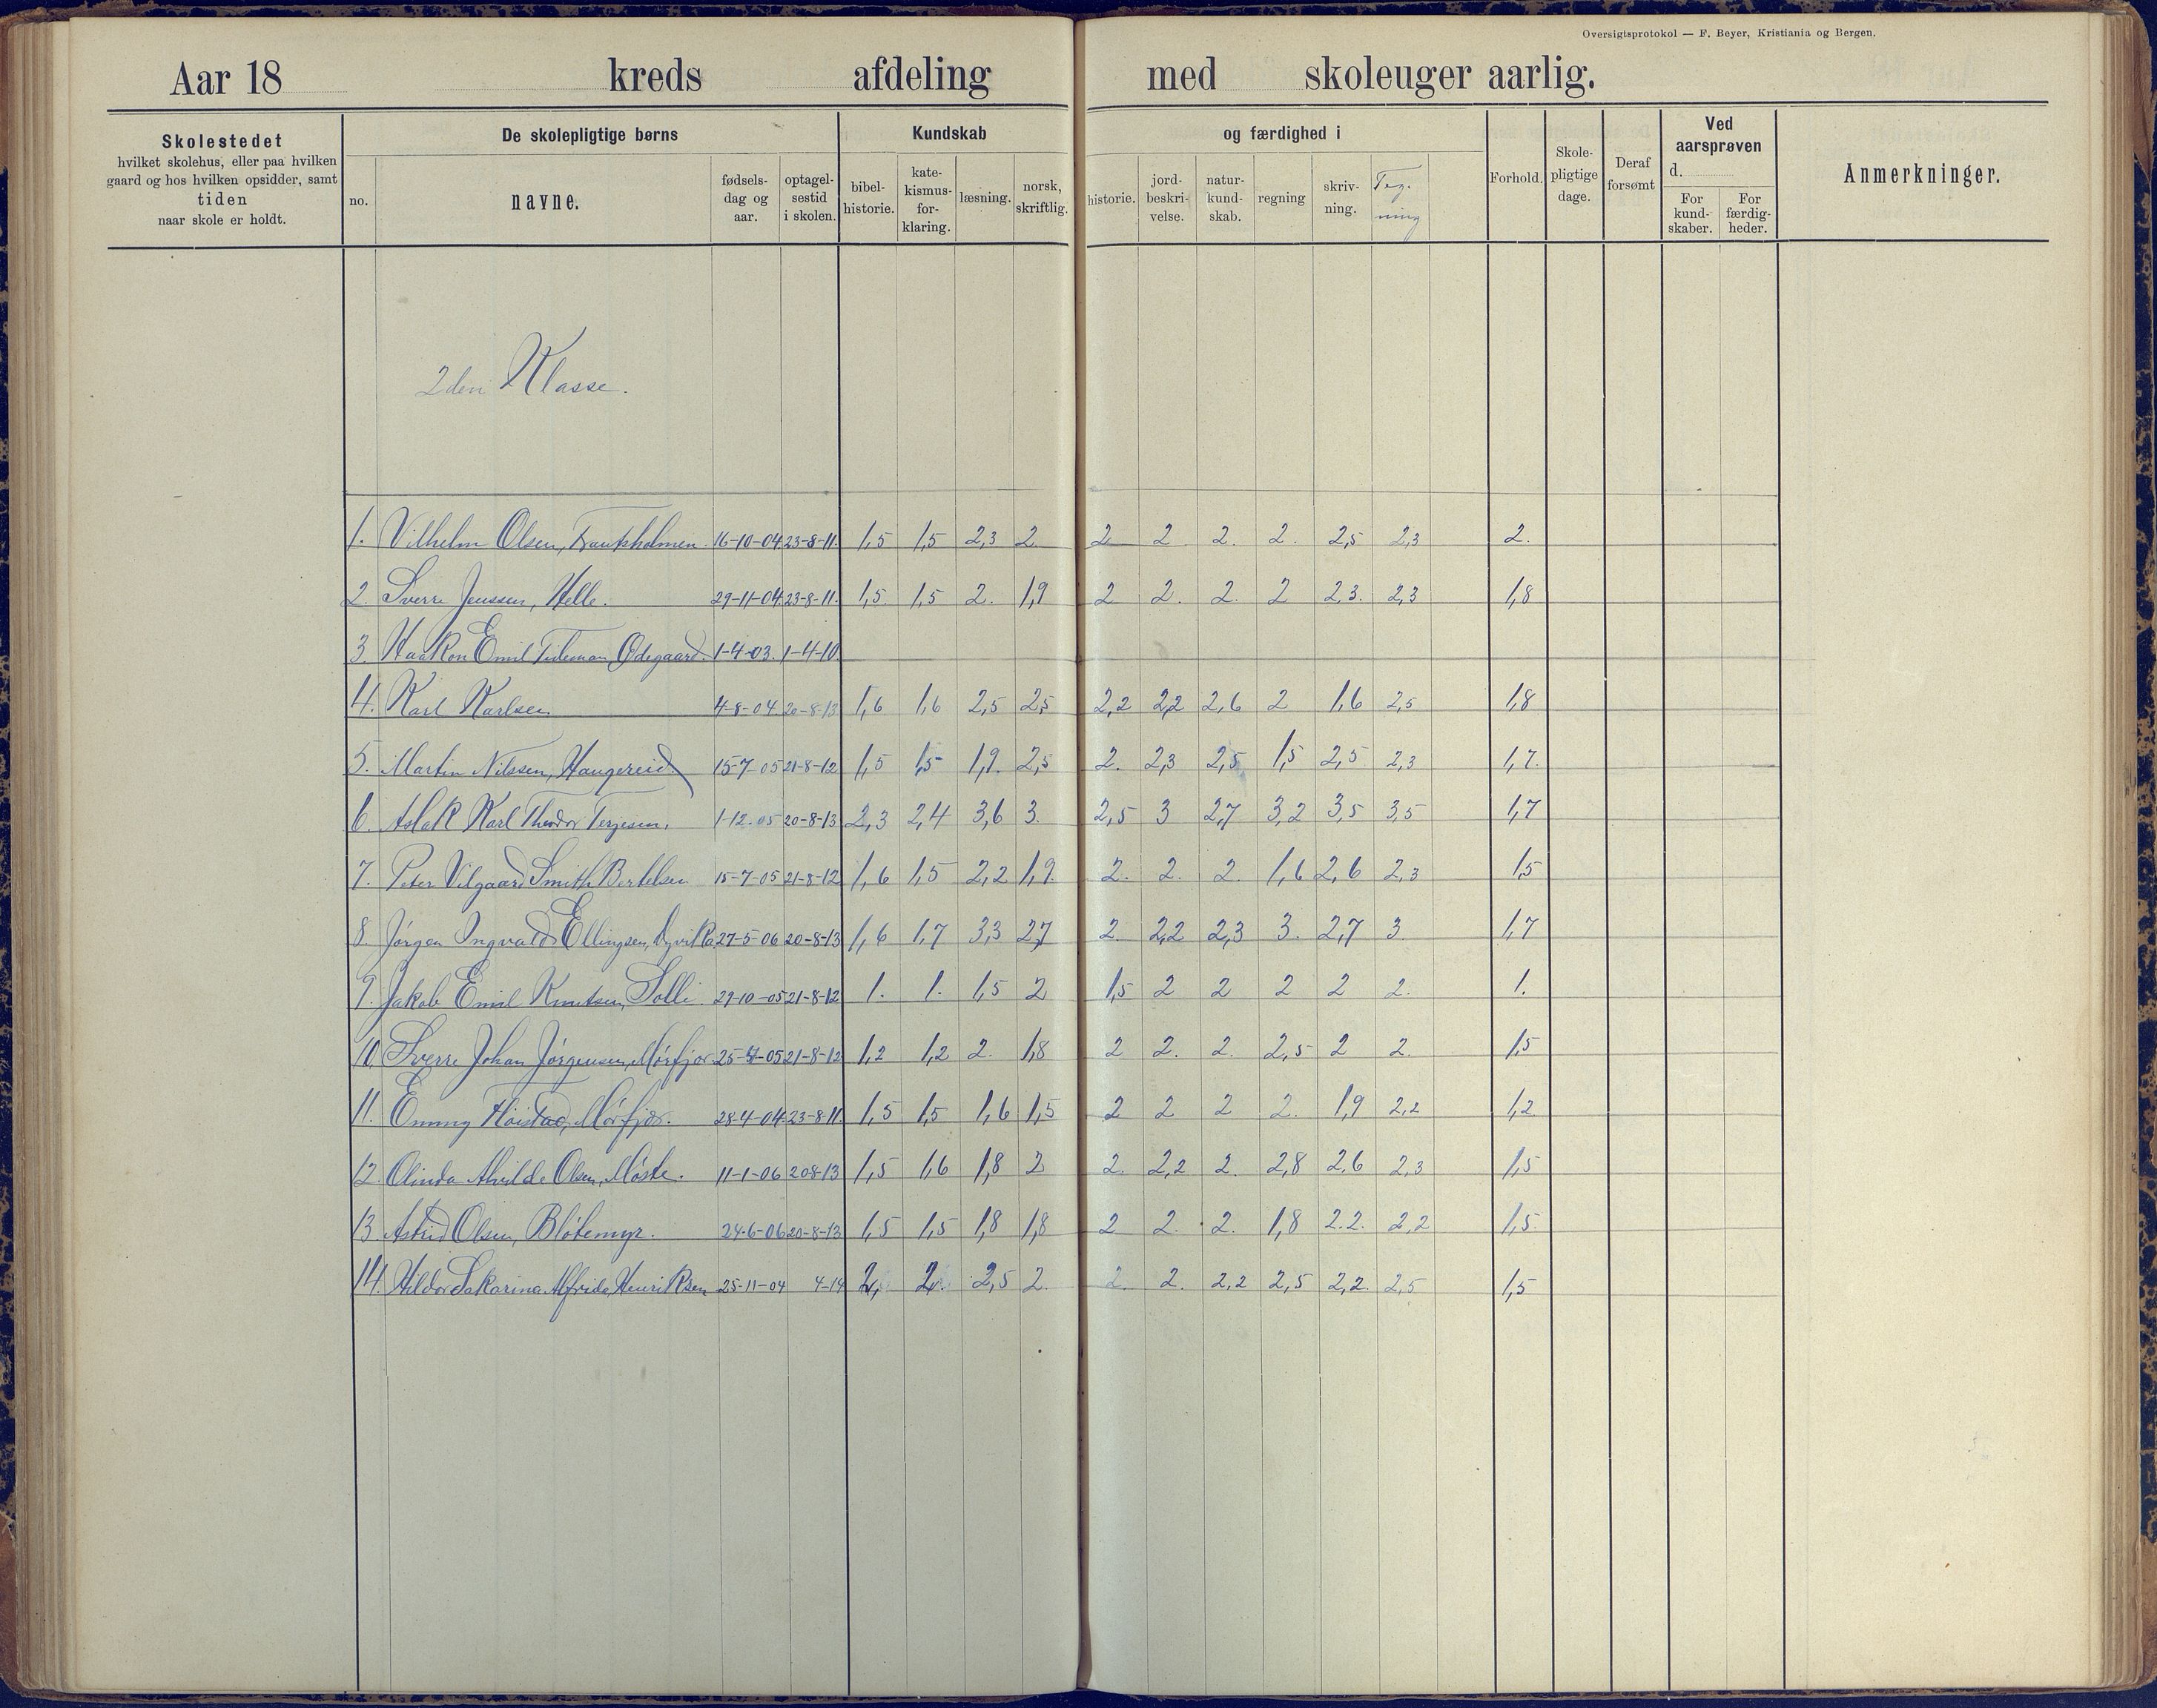 Oversigtsprotokol — F. Beyer, Kristiania og Bergen.
Aar 18 kreds afdeling med skoleuger aarlig.
Skolestedet
hvilket skolehus, eller paa hvilken
gaard og hos hvilken opsidder, samt
tiden
naar skole er holdt.
De skolepligtige børns
no.
navne.
fødsels-
dag og
aar.
optagel-
sestid
i skolen.
Kundskab
bibel-
historie.
kate-
kismus-
for-
klaring.
læsning.
norsk,
skriftlig.
og færdighed i
historie.
jord-
beskri-
velse.
natur-
kund-
skab.
regning
skriv-
ning.
Teg-
ning
Forhold.
Skole-
pligtige
dage.
Deraf
forsømt
Ved
aarsprøven
d.
For
kund-
skaber.
For
færdig-
heder.
Anmerkninger.
2den Klasse.
1. Vilhelm Olsen, 16-10-04 23-8-11. 1,5 1,5 2,3 2 2 2 2. 2. 2,5 2,3 2.
2. Sverre Jenssen, Helle. 29-11-04 23-8-11. 1,5 1,5 2. 1,9 2 2. 2. 2 2,3. 2,3 1,8
3. Haakon Emil Tideman Ødegaard. 1-4-03. 1-4-10.
4. Karl Karlsen 4-8-04 20-8-13 1,6 1,6 2,5 2,5 2,2 2,2 2,6 2 1,6 2,5 1,8
5. Martin Nilssen, Haugereid 15-7-05 21-8-12 1,5 1,5 1,9. 2,5 2. 2,3 2,5 1,5 2,5 2,3 1,7.
6. Aslak Karl Theodor Terjesen. 1-12-05 20-8-13 2,3 2,4 3,6 3. 2,5 3 2,7 3,2 3,5 3,5 1,7
7. Peter Vilgaard Smith Bertelsen 15-7-05 21-8-12 1,6 1,5 2,2 1,9. 2. 2. 2 1,6 2,6 2,3 1,5
8. Jørgen Ingvald Ellingsen, Dyvika 27-5-06 20-8-13 1,6 1,7 3,3 2,7 2. 2,2 2,3 3. 2,7 3 1,7
9. Jakob Emil Knutsen, Solli. 29-10-05 21-8-12 1. 1. 1,5 2 1,5 2 2 2 2 2. 1.
10. Sverre Johan Jørgensen, Mörfjær 21-8-12 1,2 1,2 2. 1,8 2 2. 2. 2,5 2 2. 1,5
11. Emmy Høistad, Mörfjær. 28-4-04 23-8-11. 1,5 1,5 1,6 1,5 2 2 2 2. 1,9 2,2 1,2
12. Olinda Alvilde Olsen, Möste. 11-1-06 20-8-13 1,5 1,6 1,8 2 2. 2,2 2. 2,8 2,6 2,3 1,5
13. Astrid Olsen, Blötemyr. 24-6-06 20-8-13 1,5 1,5 1,8 1,8 2 2. 2. 1,8 2.2. 2,2 1,5.
14. Hildor Sakarina Alfrida Henriksen 25-11-04 4-14 2, 2. 2,5 2. 2. 2. 2,2 2,5 2,2. 2,5 1,5